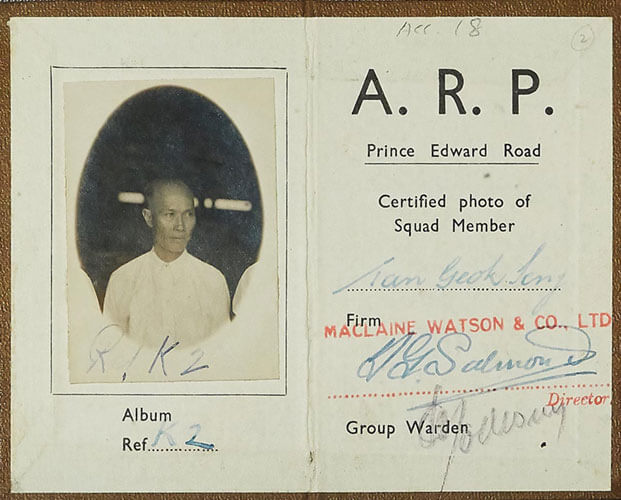 Acc. 18
2
A. R. P.
Prince Edward Road
Certified photo of
Squad Member
Tan Geok Seng
Firm
MACLAINE WATSON & CO., LTD
Salmond
Director.
Group Warden
R/K2
Album
Ref. K2